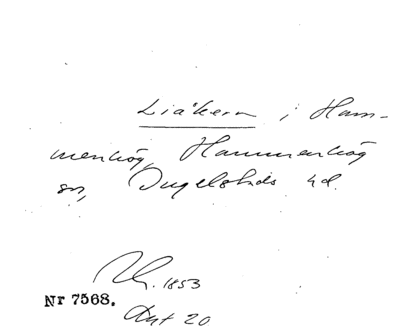 Liåkern i Ham-
menhög, Hammenhög
sn, Ingelstads hd.
1853
Nr 7568.
20